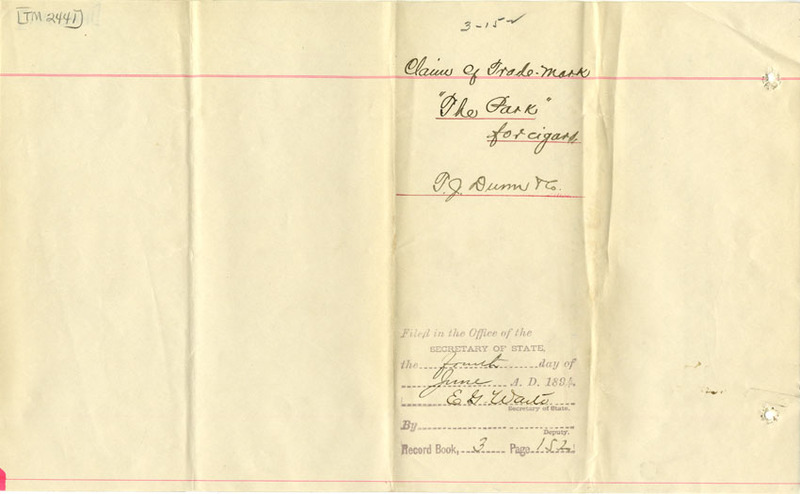 [TM 2441]
3-152
Claim of Trade-mark
"The Park"
for cigars
T. J. Dunn & Co.
Filed in the Office of the
SECRETARY OF STATE,
the fourth day of
June A. D. 1894.
E. G. Waite
Secretary of State.
By
Deputy.
Record Book, 3 Page 152